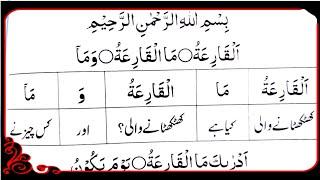 بِسْمِ اللهِ الرَّحْمٰنِ الرَّحِيْمِ
اَلْقَارِعَةُ ○ مَا الْقَارِعَةُ ○ وَمَاۤ
اَلْقَارِعَةُ مَا الْقَارِعَةُ وَ مَاۤ
کھٹکھٹانے والی کیا ہے کھٹکھٹانے والی؟ اور کس چیز نے
اَدْرٰىكَ مَا الْقَارِعَةُ ○ يَوْمَ يَكُوْنُ